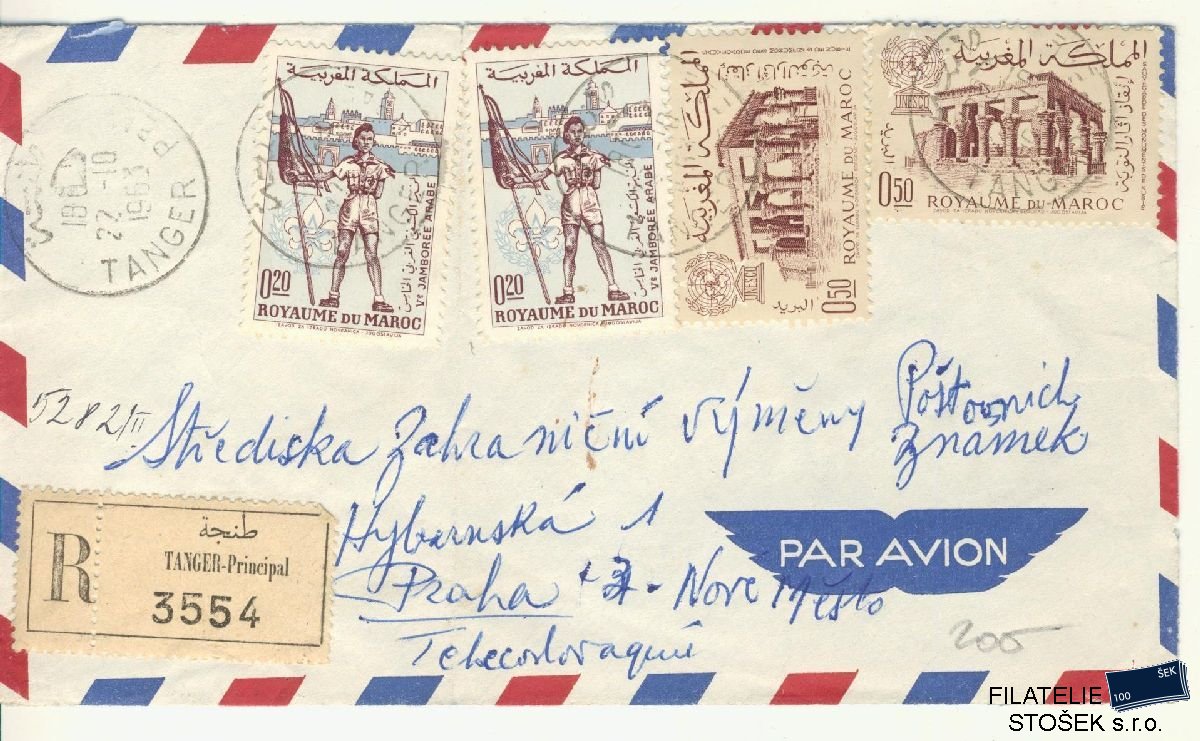 18
22 -10
1963
TANGER P
المملكة المغربية
0.20
Ve JAMBORÉE ARABE
ROYAUME DU MAROC
ZAVOD ZA IZRADU NOVČANICA JUGOSLAVIJA
المملكة المغربية
0.20
Ve JAMBORÉE ARABE
ROYAUME DU MAROC
ZAVOD ZA IZRADU NOVČANICA JUGOSLAVIJA
المملكة المغربية
UNESCO
البريد
0.50
ROYAUME DU MAROC
المملكة المغربية
UNESCO
البريد
0.50
ROYAUME DU MAROC
5282/II
Střediska Zahraniční Výměny Poštovních
Známek
Hybernská 1
Praha - Nové Město
Tchecoslovaquie
R
طنجة
TANGER-Principal
3554
PAR AVION
200
ŠEK
100
FILATELIE
STOŠEK s.r.o.